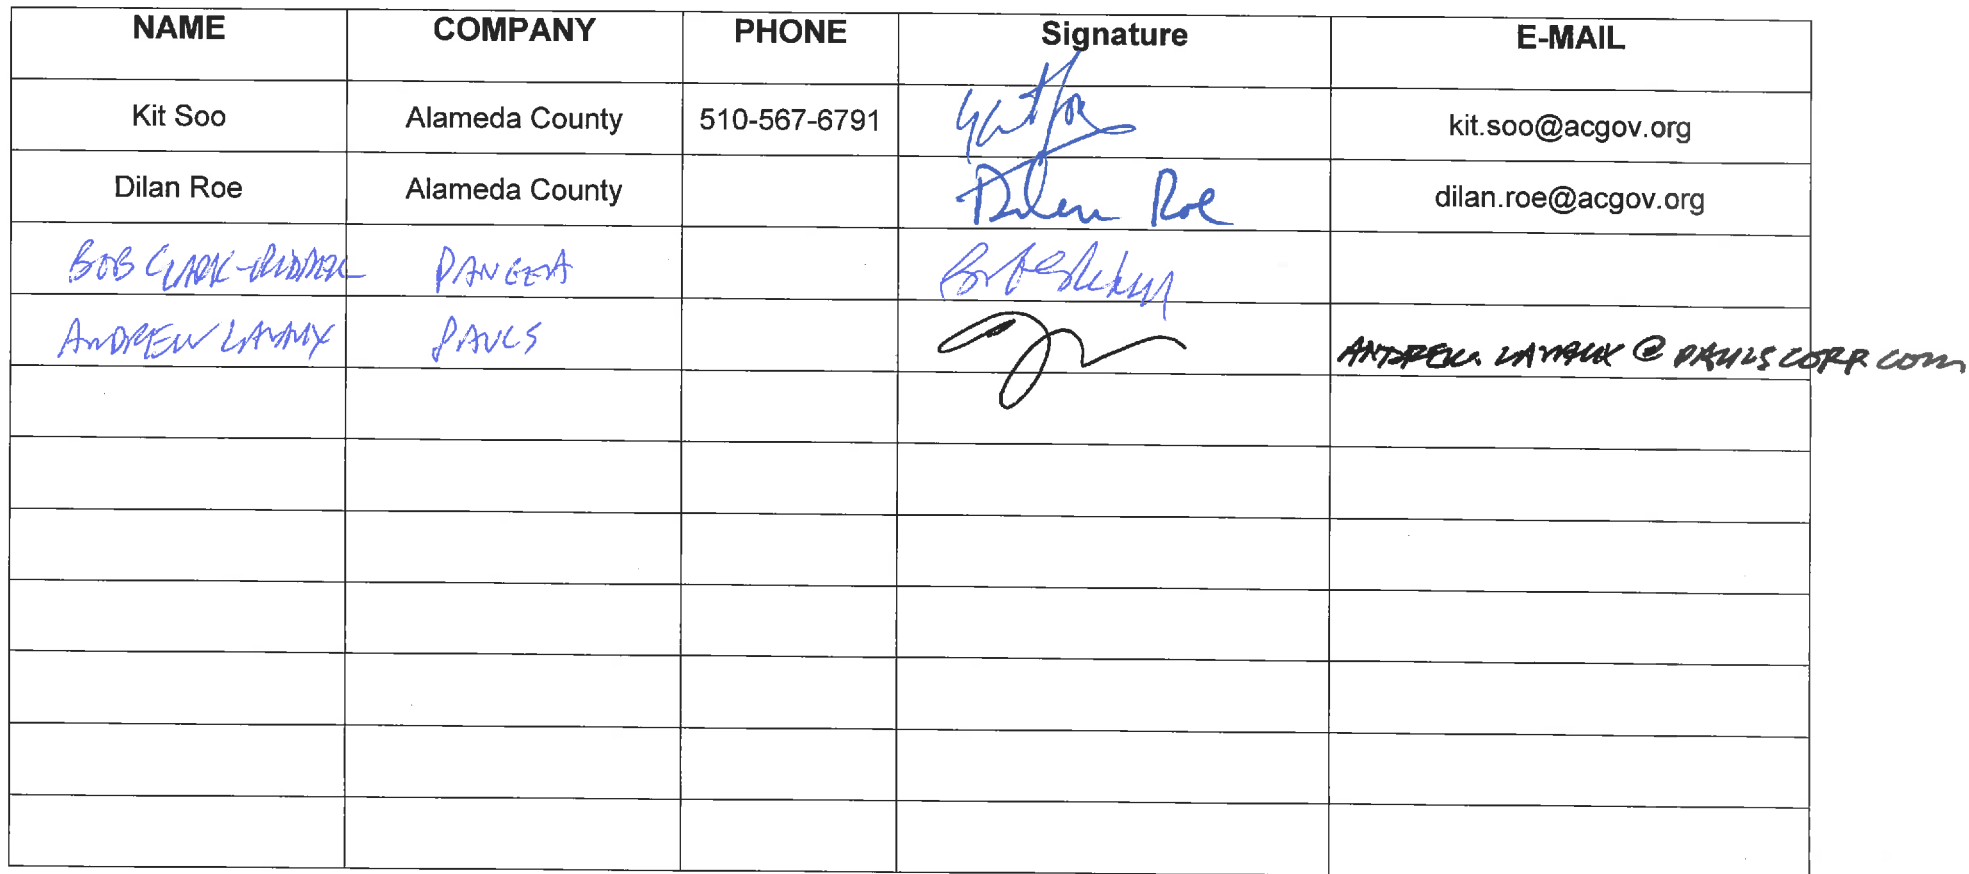 NAME COMPANY PHONE Signature E-MAIL
Kit Soo Alameda County 510-567-6791 kit.soo@acgov.org
Dilan Roe Alameda County Dilan Roe dilan.roe@acgov.org
BOB CLARK-RIDDELL PANGEA
ANDREW LAVAUX PAULS ANDREW.LAVAUX@PAULSCORP.COM